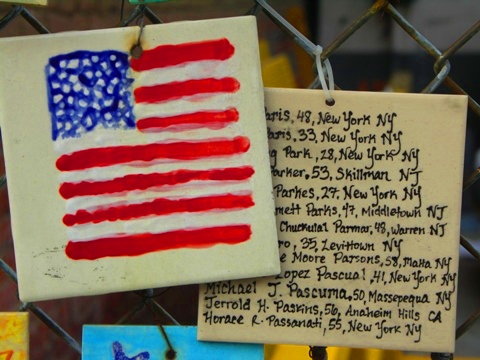 aris, 48, New York NY
aris, 33, New York NY
g Park, 28, New York NY
arker, 53, Skillman NJ
Parkes, 27, New York NY
nett Parks, 47, Middletown NJ
Chuckulal Parmar, 48, Warren NJ
ro, 35, Levittown NY
e Moore Parsons, 58, Malta NY
Lopez Pascual, 41, New York NY
Michael J. Pascuma, 50, Massepequa NY
Jerrold H. Paskins, 56, Anaheim Hills CA
Horace R. Passanati, 55, New York NY